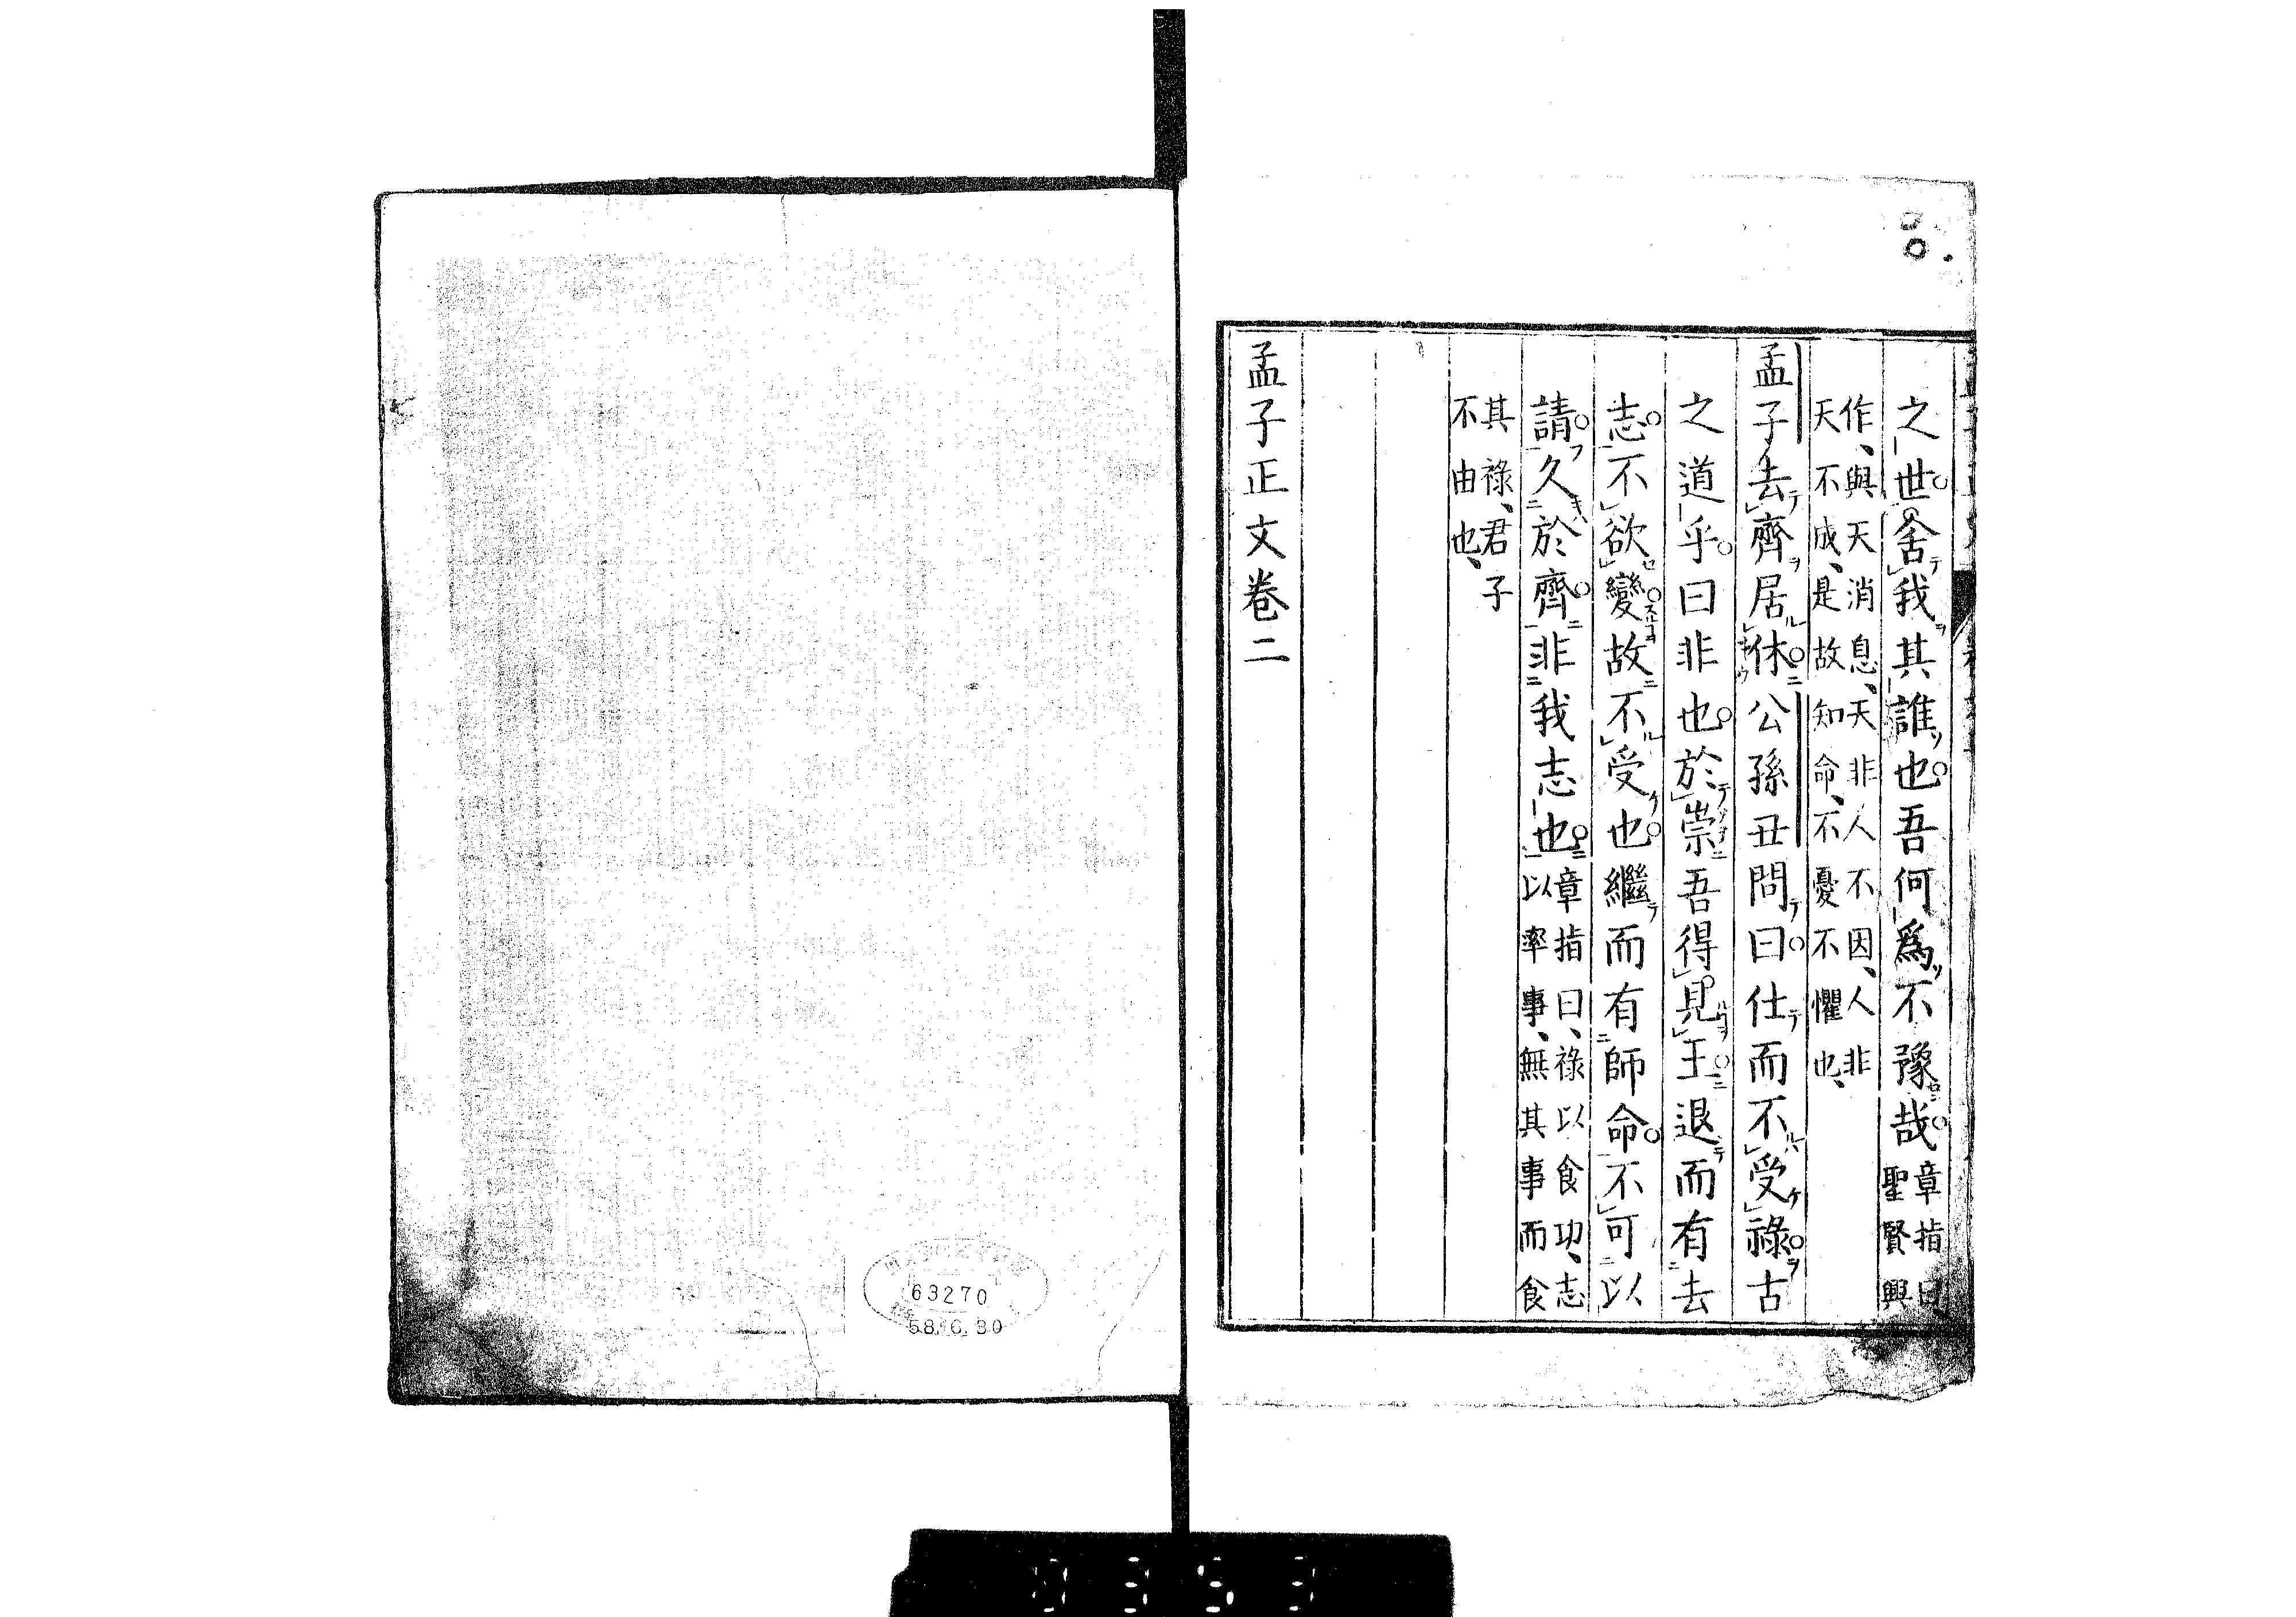 之世舍我其誰也吾何爲不豫哉章指曰聖賢興
作、與天消息、天非人不因、人非
天不成、是故知命、不憂不懼也、
孟子去齊居休公孫丑問曰仕而不受祿古
之道乎曰非也於崇吾得見王退而有去
志不欲變故不受也繼而有師命不可以
請久於齊非我志也章指曰、祿以食功、志
以率事、無其事而食
其祿、君子
不由也、
孟子正文卷二
63270
58.6.30